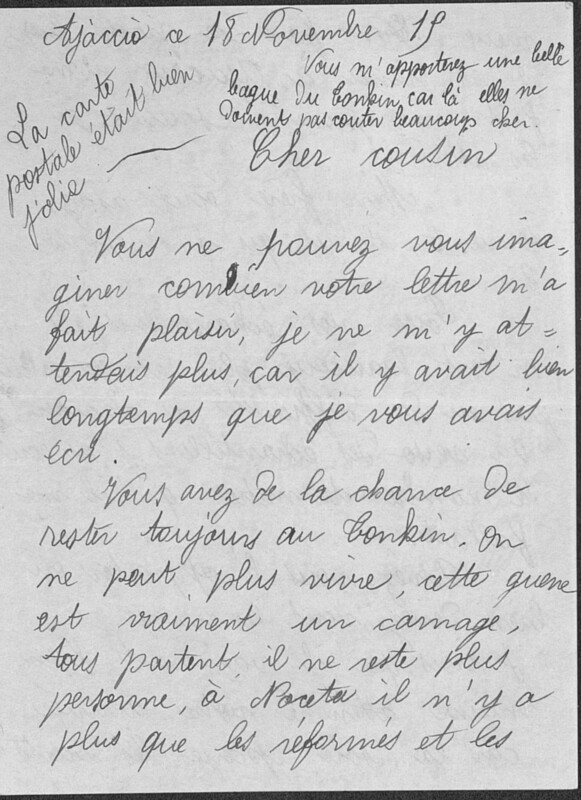 Ajaccio ce 18 Novembre 15
Vous m'apporterez une belle
bague du Tonkin car là elles ne
doivent pas couter beaucoup cher.
La carte
postale était bien
jolie
Cher cousin
Vous ne pouvez vous ima-
giner combien votre lettre m'a
fait plaisir, je ne m'y at=
tendais plus, car il y avait bien
longtemps que je vous avais
écri.
Vous avez de la chance de
rester toujours au Tonkin. On
ne peut plus vivre, cette guerre
est vraiment un carnage,
tous partent, il ne reste plus
personne, à Noceta il n'y a
plus que les réformes et les